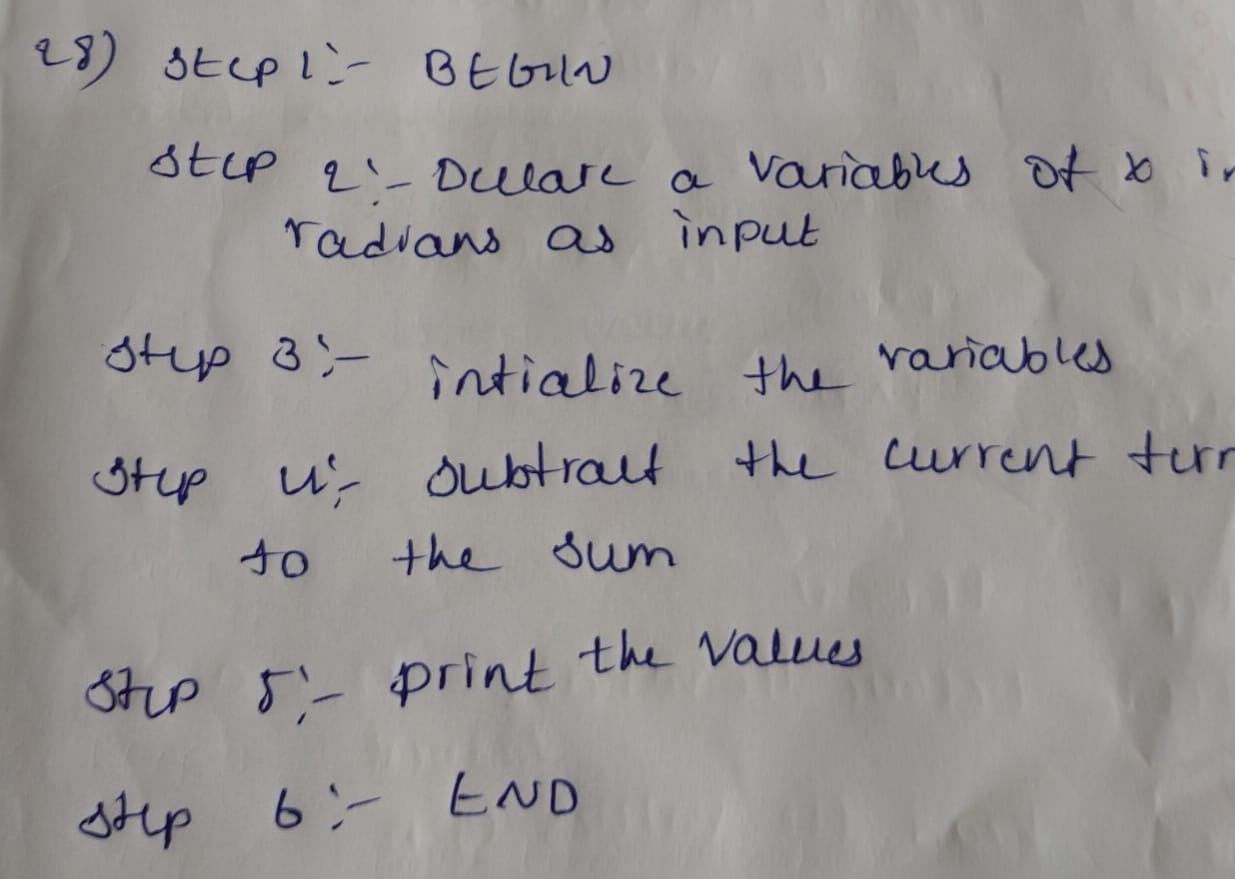 28) Step 1:- BEGIN
Step 2:- Declare a variables of x in
radians as input
Step 3:- intialize the variables
Step 4:- subtract the current term
to the sum
Step 5:- print the values
Step 6:- END